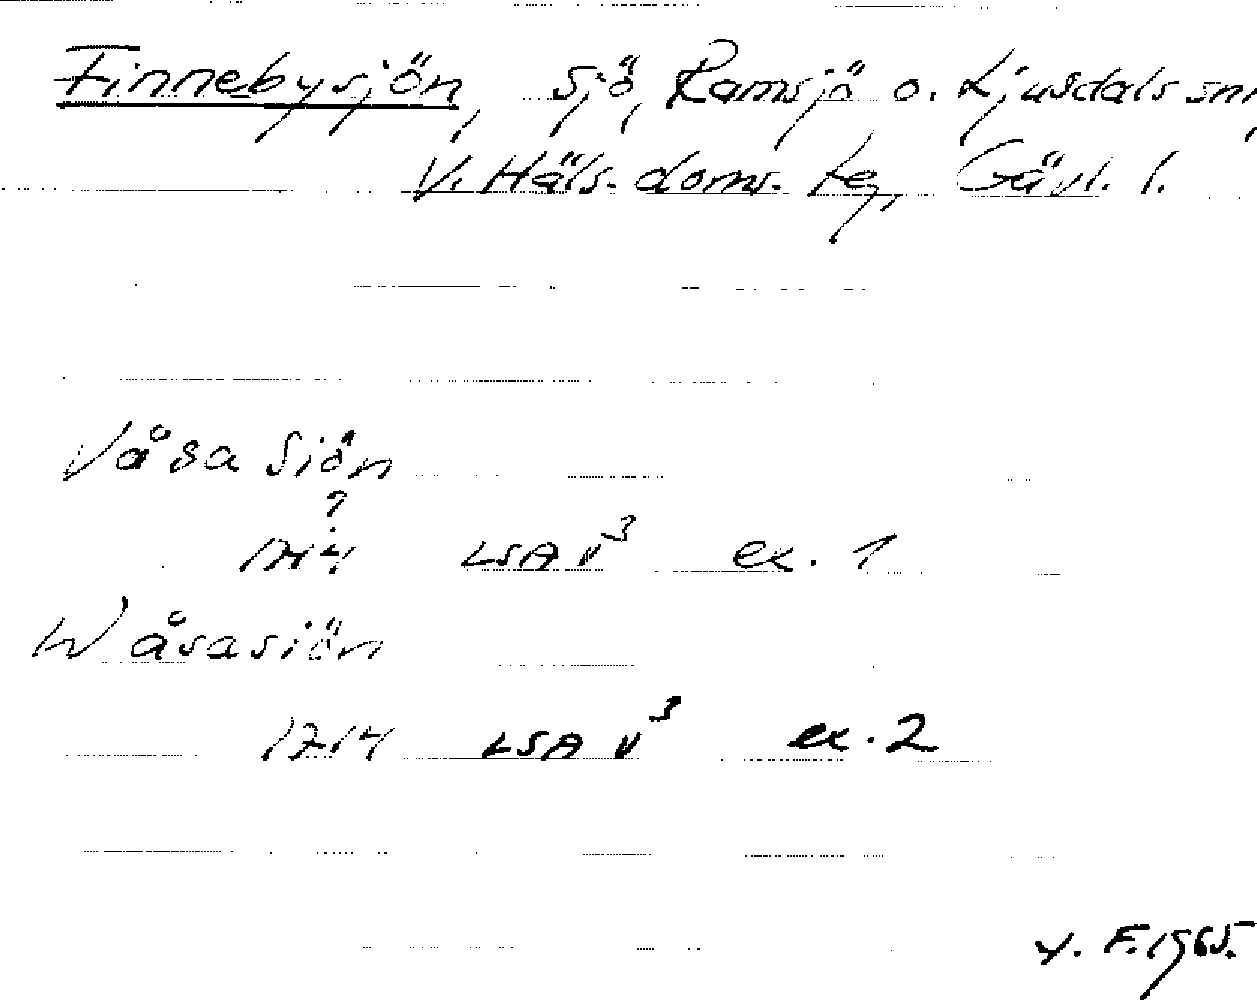 Finnebysjön, sjö, Ramsjö o. Ljusdals snr,
V. Häls. doms. tg, Gävl. l.
Våsa Siön
?
1714 LSA V³ ex. 1
Wåsasiön
1714 LSA V³ ex. 2
F. 1965.